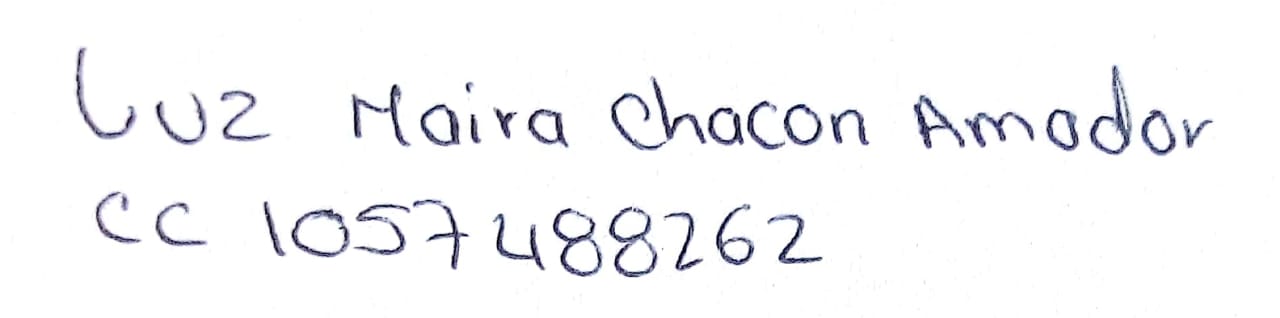 Luz Maira Chacon Amador
CC 1057488262